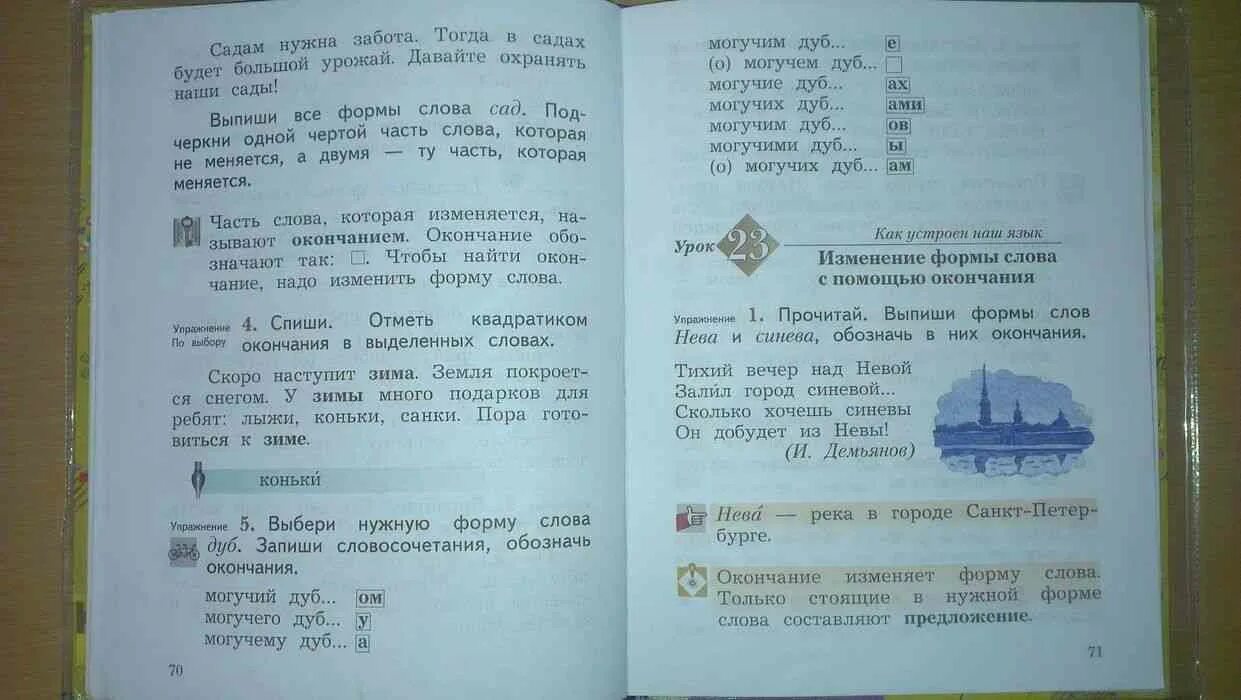 Садам нужна забота. Тогда в садах
будет большой урожай. Давайте охранять
наши сады!
Выпиши все формы слова сад. Под-
черкни одной чертой часть слова, которая
не меняется, а двумя — ту часть, которая
меняется.
Часть слова, которая изменяется, на-
зывают окончанием. Окончание обо-
значают так: □. Чтобы найти окон-
чание, надо изменить форму слова.
Упражнение 4. Спиши. Отметь квадратиком
По выбору окончания в выделенных словах.
Скоро наступит зима. Земля покроет-
ся снегом. У зимы много подарков для
ребят: лыжи, коньки, санки. Пора гото-
виться к зиме.
коньки́
Упражнение 5. Выбери нужную форму слова
дуб. Запиши словосочетания, обозначь
окончания.
могучий дуб... ом
могучего дуб... у
могучему дуб... а
70
могучим дуб... е
(о) могучем дуб... □
могучие дуб... ах
могучих дуб... ами
могучим дуб... ов
могучими дуб... ы
(о) могучих дуб... ам
Урок 23 Как устроен наш язык
Изменение формы слова
с помощью окончания
Упражнение 1. Прочитай. Выпиши формы слов
Нева и синева, обозначь в них окончания.
Тихий вечер над Невой
Зали́л город синевой...
Сколько хочешь синевы
Он добудет из Невы!
(И. Демьянов)
Нева́ — река в городе Санкт-Петер-
бурге.
Окончание изменяет форму слова.
Только стоящие в нужной форме
слова составляют предложение.
71